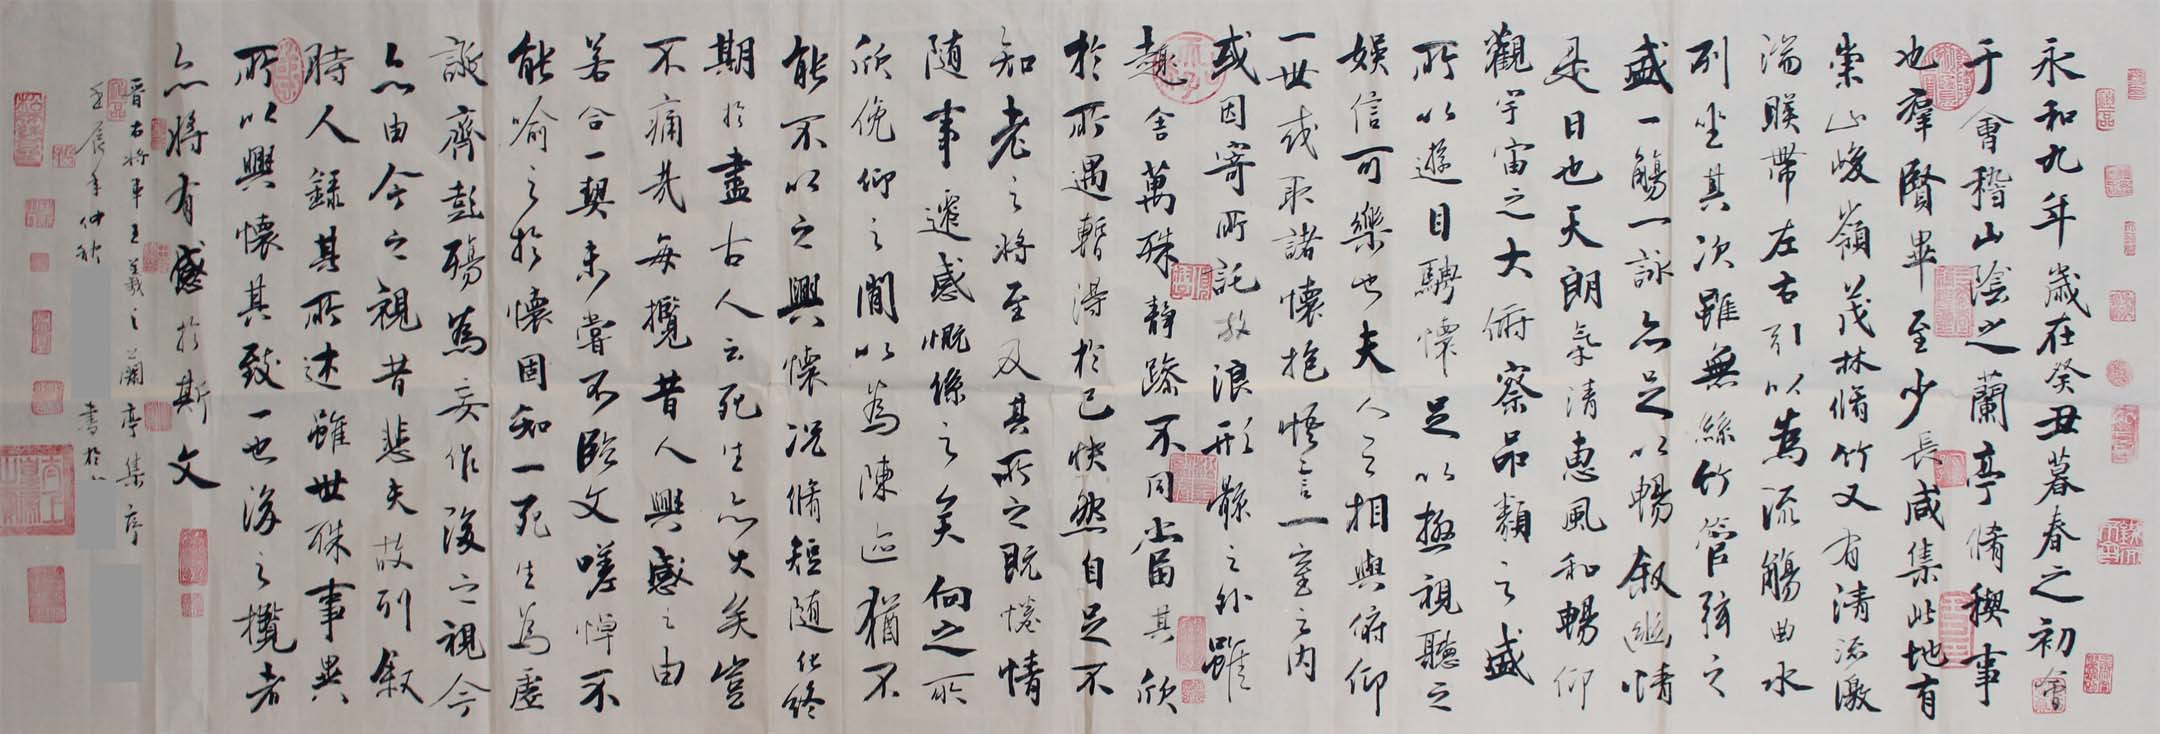 永和九年歲在癸丑暮春之初會
于會稽山陰之蘭亭脩稧事
也羣賢畢至少長咸集此地有
崇山峻嶺茂林脩竹又有清流激
湍暎帶左右引以為流觴曲水
列坐其次雖無絲竹管弦之
盛一觴一詠亦足以暢叙幽情
是日也天朗氣清惠風和暢仰
觀宇宙之大俯察品類之盛
所以遊目騁懷足以極視聽之
娛信可樂也夫人之相與俯仰
一世或取諸懷抱悟言一室之內
或因寄所託放浪形骸之外雖
趣舍萬殊靜躁不同當其欣
於所遇暫得於己快然自足不
知老之將至及其所之既惓情
隨事遷感慨係之矣向之所
欣俛仰之間以為陳迹猶不
能不以之興懷況脩短隨化終
期於盡古人云死生亦大矣豈
不痛哉每攬昔人興感之由
若合一契未嘗不臨文嗟悼不
能喻之於懷固知一死生為虛
誕齊彭殤為妄作後之視今
亦由今之視昔悲夫故列叙
時人錄其所述雖世殊事異
所以興懷其致一也後之攬者
亦將有感於斯文
晋右將軍王羲之蘭亭集序
壬辰年仲秋 書於